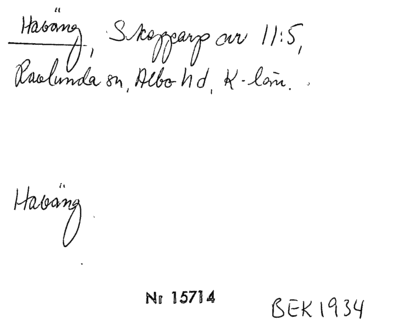 Haväng, Skepparp av 11:5,
Ravlunda sn, Albo hd, K-län.
Haväng
Nr 15714
BEK 1934